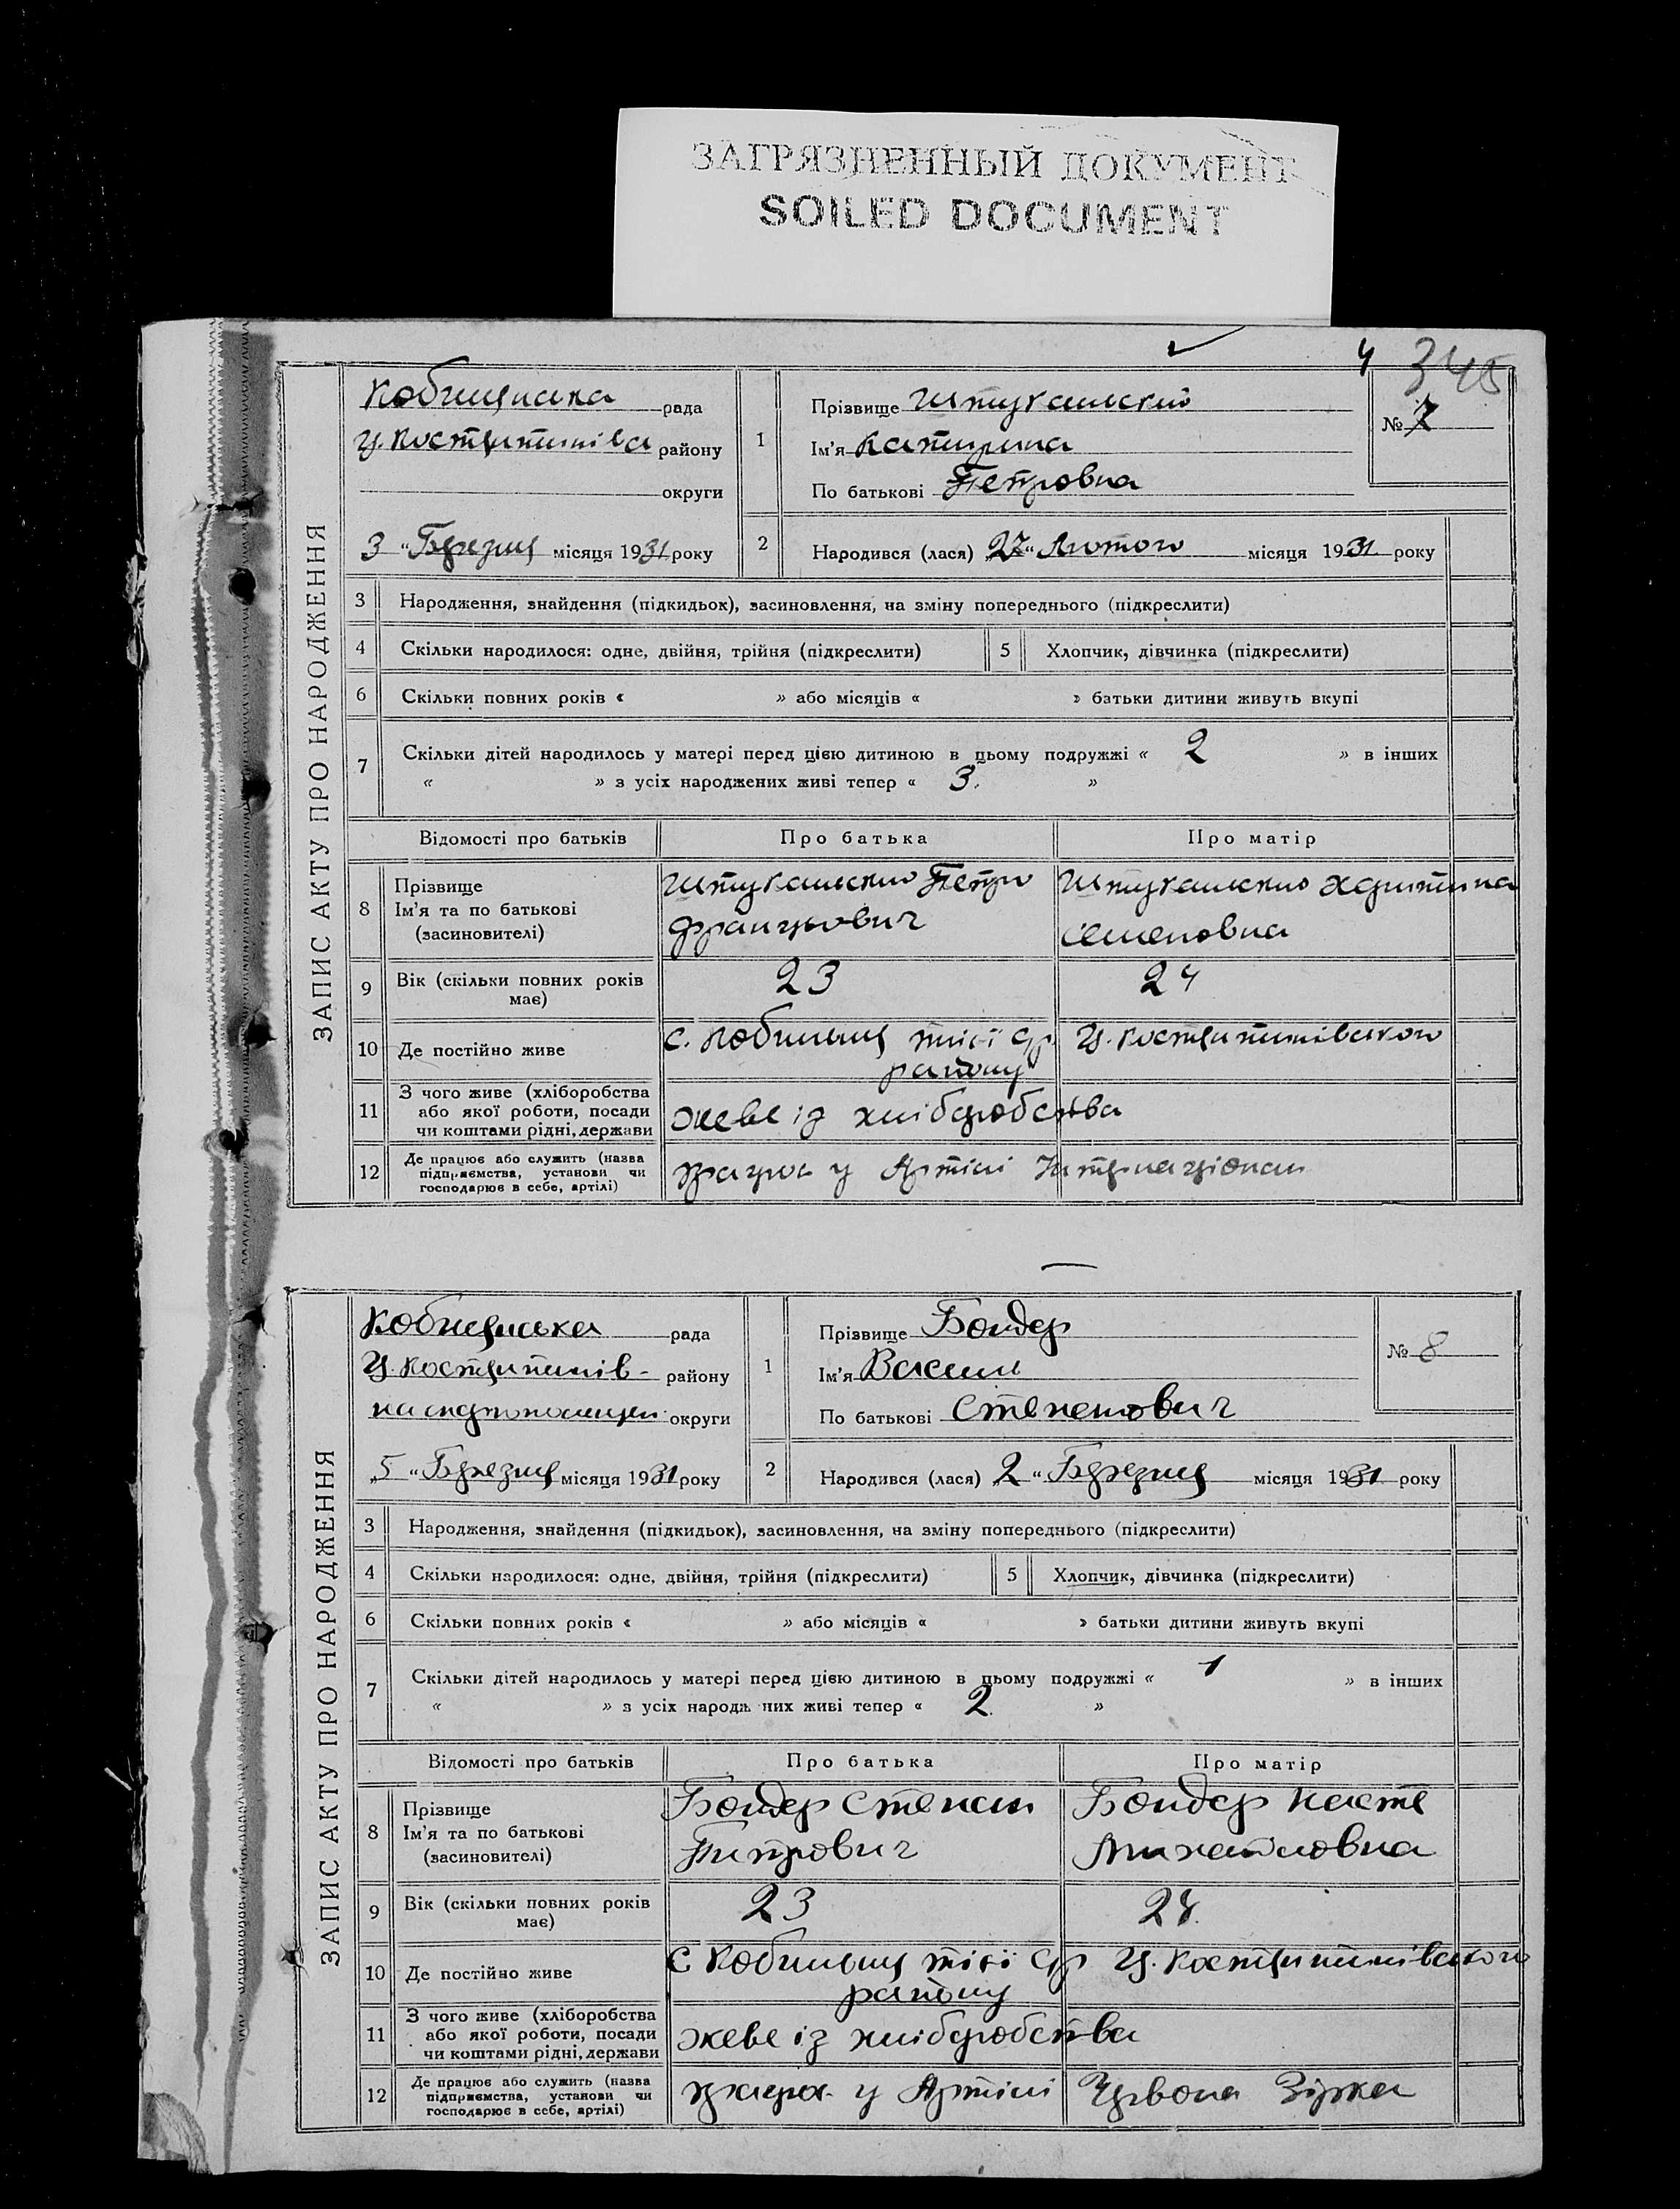 ЗАГРЯЗНЕННЫЙ ДОКУМЕНТ
SOILED DOCUMENT
4 345
ЗАПИС АКТУ ПРО НАРОДЖЕННЯ
рада
району
округи
3 "Березня місяця 1931 року
1
Прізвище
Ім'я Катирина
По батькові Петровна
№ 7
2
Народився (лася) 27 "Лютого місяця 1931 року
3 Народження, знайдення (підкидьок), засиновлення, на зміну попереднього (підкреслити)
4 Скільки народилося: одне, двійня, трійня (підкреслити) 5 Хлопчик, дівчинка (підкреслити)
6 Скільки повних років « » або місяців « » батьки дитини живуть вкупі
7 Скільки дітей народилось у матері перед цією дитиною в цьому подружжі « 2 » в інших
« » з усіх народжених живі тепер « 3. »
Відомості про батьків Про батька Про матір
8 Прізвище Петро Харитина
Ім'я та по батькові
(засновителі) Францович Семеновна
9 Вік (скільки повних років має) 23 24
10 Де постійно живе с. району
11 З чого живе (хліборобства або якої роботи, посади чи коштами рідні, держави живе із хліборобства
12 Де працює або служить (назва підприємства, установи чи господарює в себе, артілі) працює у Артілі Інтернаціонал
ЗАПИС АКТУ ПРО НАРОДЖЕННЯ
рада
району
округи
5 "Березня місяця 1931 року
1
Прізвище Бондер
Ім'я Василь
По батькові Степанович
№ 8
2
Народився (лася) 2 "Березня місяця 1931 року
3 Народження, знайдення (підкидьок), засиновлення, на зміну попереднього (підкреслити)
4 Скільки народилося: одне, двійня, трійня (підкреслити) 5 Хлопчик, дівчинка (підкреслити)
6 Скільки повних років « » або місяців « » батьки дитини живуть вкупі
7 Скільки дітей народилось у матері перед цією дитиною в цьому подружжі « 1 » в інших
« » з усіх народж них живі тепер « 2. »
Відомості про батьків Про батька Про матір
8 Прізвище Бондер Степан Бондер
Ім'я та по батькові
(засиновителі) Питрович Михайловна
9 Вік (скільки повних років має) 23
10 Де постійно живе с району
11 З чого живе (хліборобства або якої роботи, посади чи коштами рідні, держави живе із хліборобства
12 Де працює або служить (назва підприємства, установи чи господарює в себе, артілі) працює у Артілі Червона Зірка